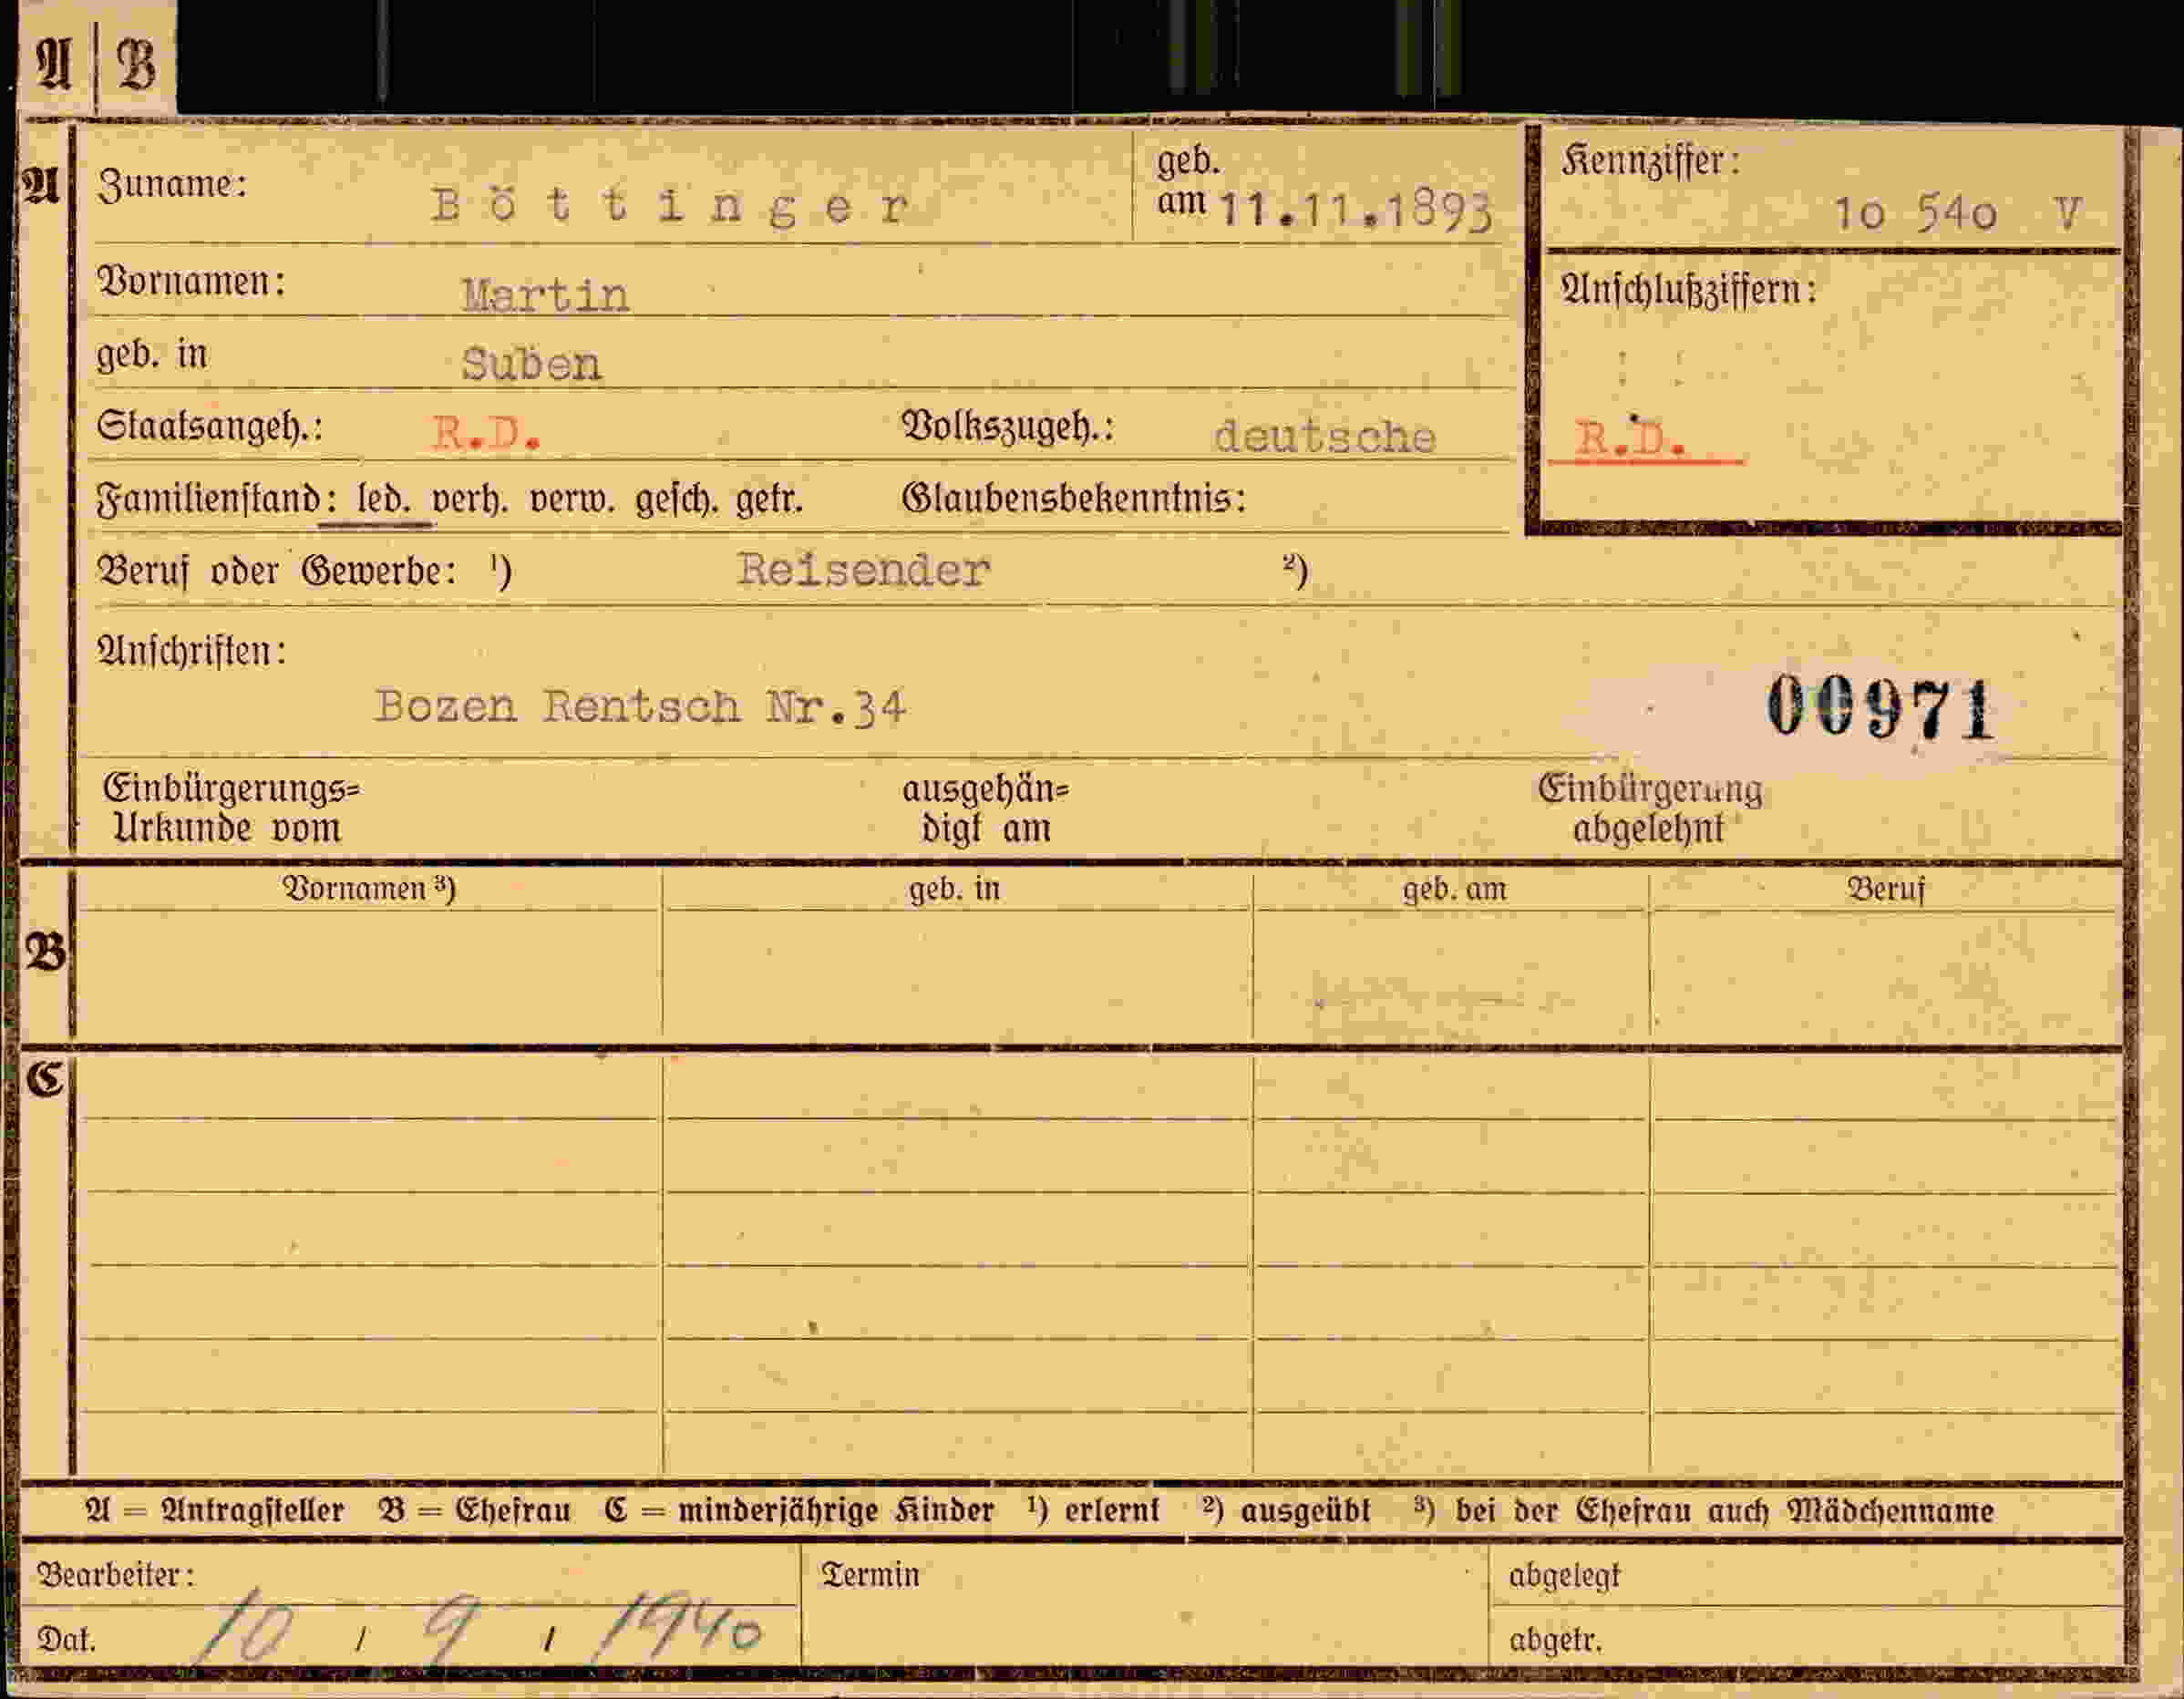 A | B
A
Zuname: Böttinger geb. am 11.11.1893
Kennziffer: 10 540 V
Vornamen: Martin
Anschlußziffern:
geb. in Suben
Staatsangeh.: R.D. Volkszugeh.: deutsche
R.D.
Familienstand: led. verh. verw. gesch. getr. Glaubensbekenntnis:
Beruf oder Gewerbe: ¹) Reisender ²)
Anschriften:
Bozen Rentsch Nr.34
00971
Einbürgerungs= ausgehän= Einbürgerung
Urkunde vom digt am abgelehnt
Vornamen ³) geb. in geb. am Beruf
B
C
A = Antragsteller B = Ehefrau C = minderjährige Kinder ¹) erlernt ²) ausgeübt ³) bei der Ehefrau auch Mädchenname
Bearbeiter: Termin abgelegt
Dat. 10 / 9 / 1940 abgetr.